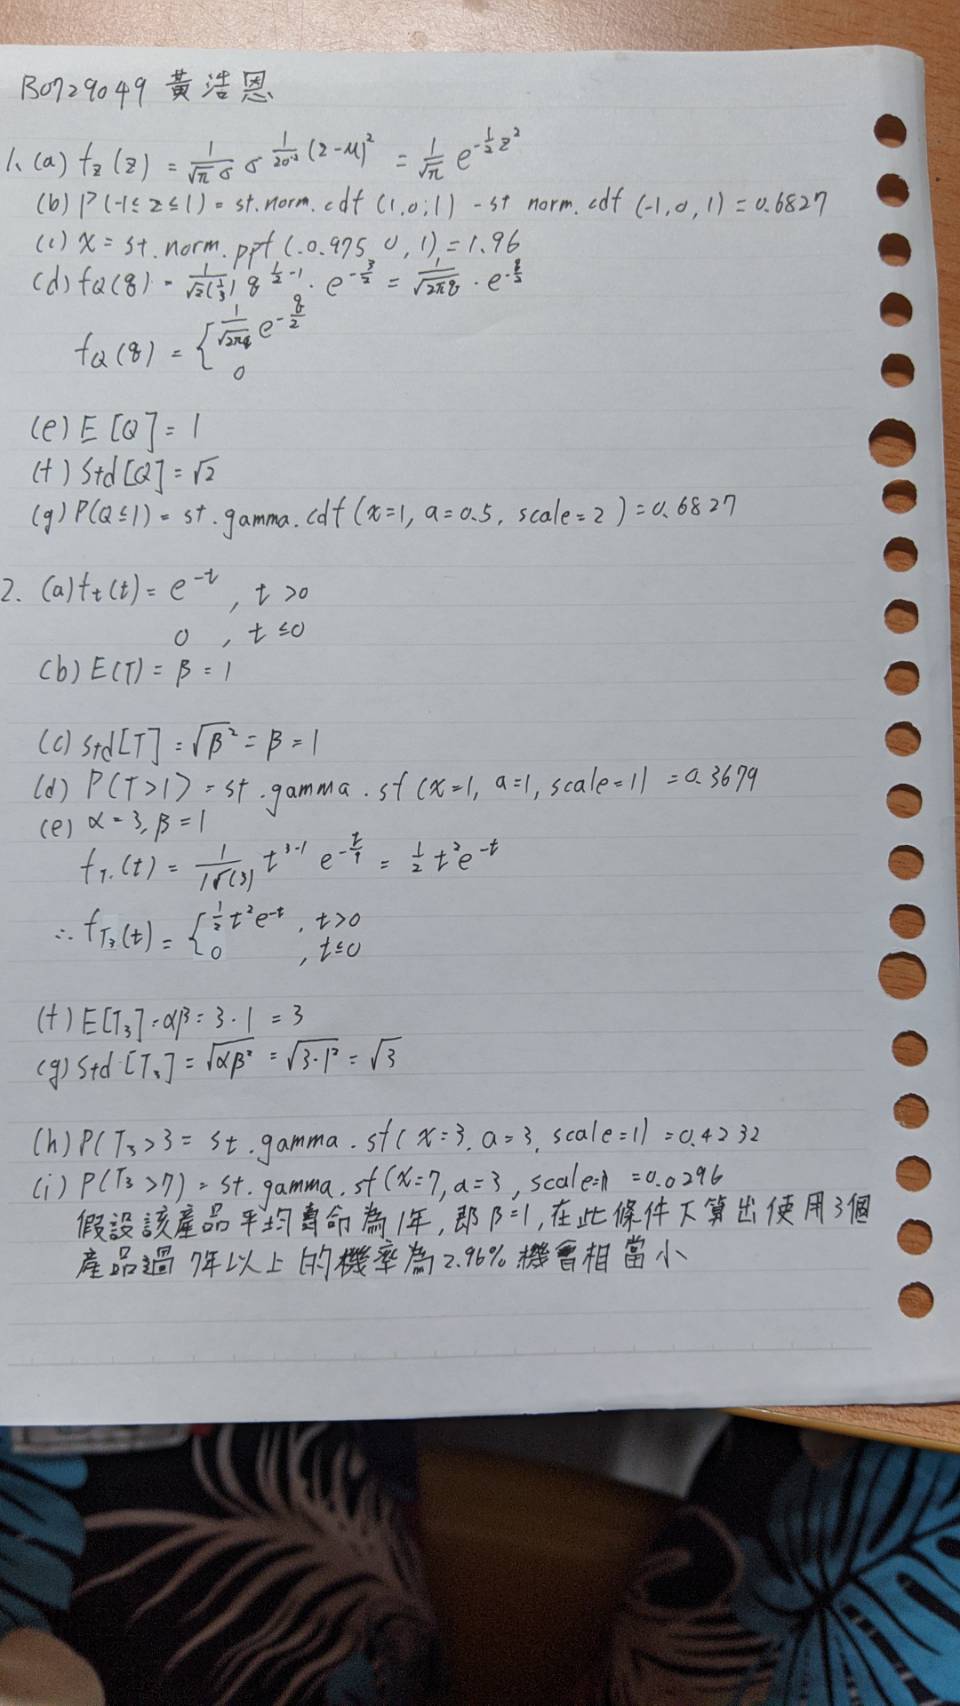 B0729049 黃浩恩
1. (a) fz(z) = 1/√π σ σ^(1/2σ² (z-μ)²) = 1/√π e^(-1/2 z²)
(b) P(-1≤z≤1) = st.norm.cdf(1,0,1) - st norm.cdf(-1,0,1) = 0.6827
(c) x = st.norm.ppf(.0.975, 0, 1) = 1.96
(d) fQ(q) = 1/√2(1/2) q^(1/2-1) · e^(-q/2) = 1/√2πq · e^(-q/2)
fQ(q) = { 1/√2πq e^(-q/2)
0
(e) E[Q] = 1
(f) Std[Q] = √2
(g) P(Q≤1) = st.gamma.cdf(x=1, a=0.5, scale=2) = 0.6827
2. (a) ft(t) = e^-t , t>0
0 , t≤0
(b) E(T) = β = 1
(c) Std[T] = √β² = β = 1
(d) P(T>1) = st.gamma.sf(x=1, a=1, scale=1) = 0.3679
(e) α=3, β=1
fT.(t) = 1/1Γ(3) t^(3-1) e^(-t/1) = 1/2 t²e^-t
∴ fT3(t) = { 1/2 t²e^-t , t>0
0 , t≤0
(f) E[T3] = αβ = 3·1 = 3
(g) Std[T3] = √αβ² = √3·1² = √3
(h) P(T3>3 = st.gamma.sf(x=3, a=3, scale=1) = 0.4232
(i) P(T3>7) = st.gamma.sf(x=7, a=3, scale=1) = 0.0296
假設該產品平均壽命為1年, 即β=1, 在此條件下算出使用3個
產品過7年以上的機率為2.96% 機會相當小